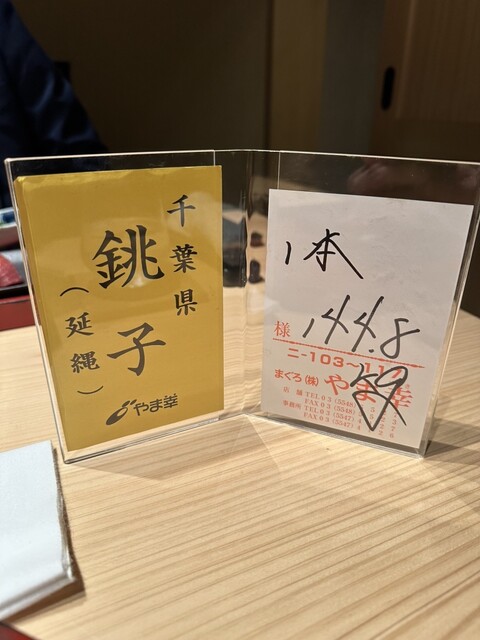 千葉県
銚子
（延縄）
やま幸
1本
様 144.8
ニ-103~117
まぐろ(株)やま幸
店舗 TEL 03 (5548)
FAX 03 (5548)
事務所 TEL 03 (5547)
FAX 03 (5547)